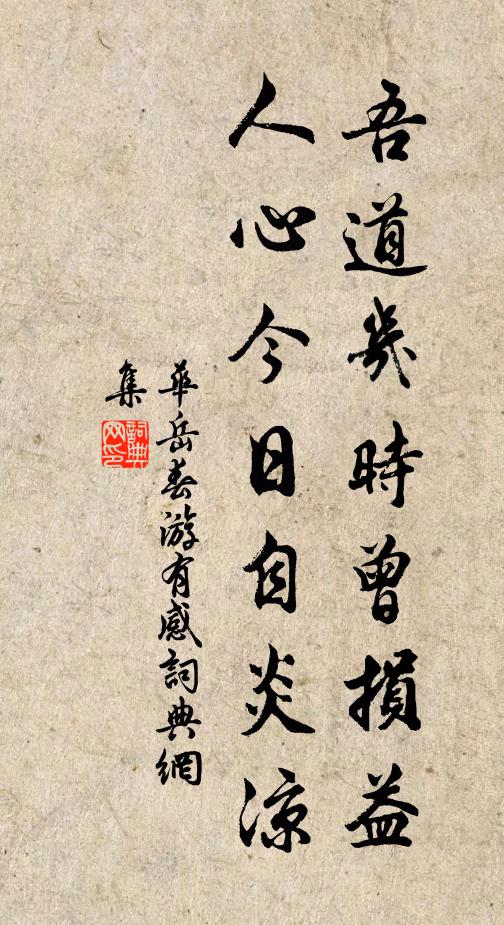 吾道幾時曾損益
人心今日自炎凉
華岳春游有感詞典網
集
詞典
网印